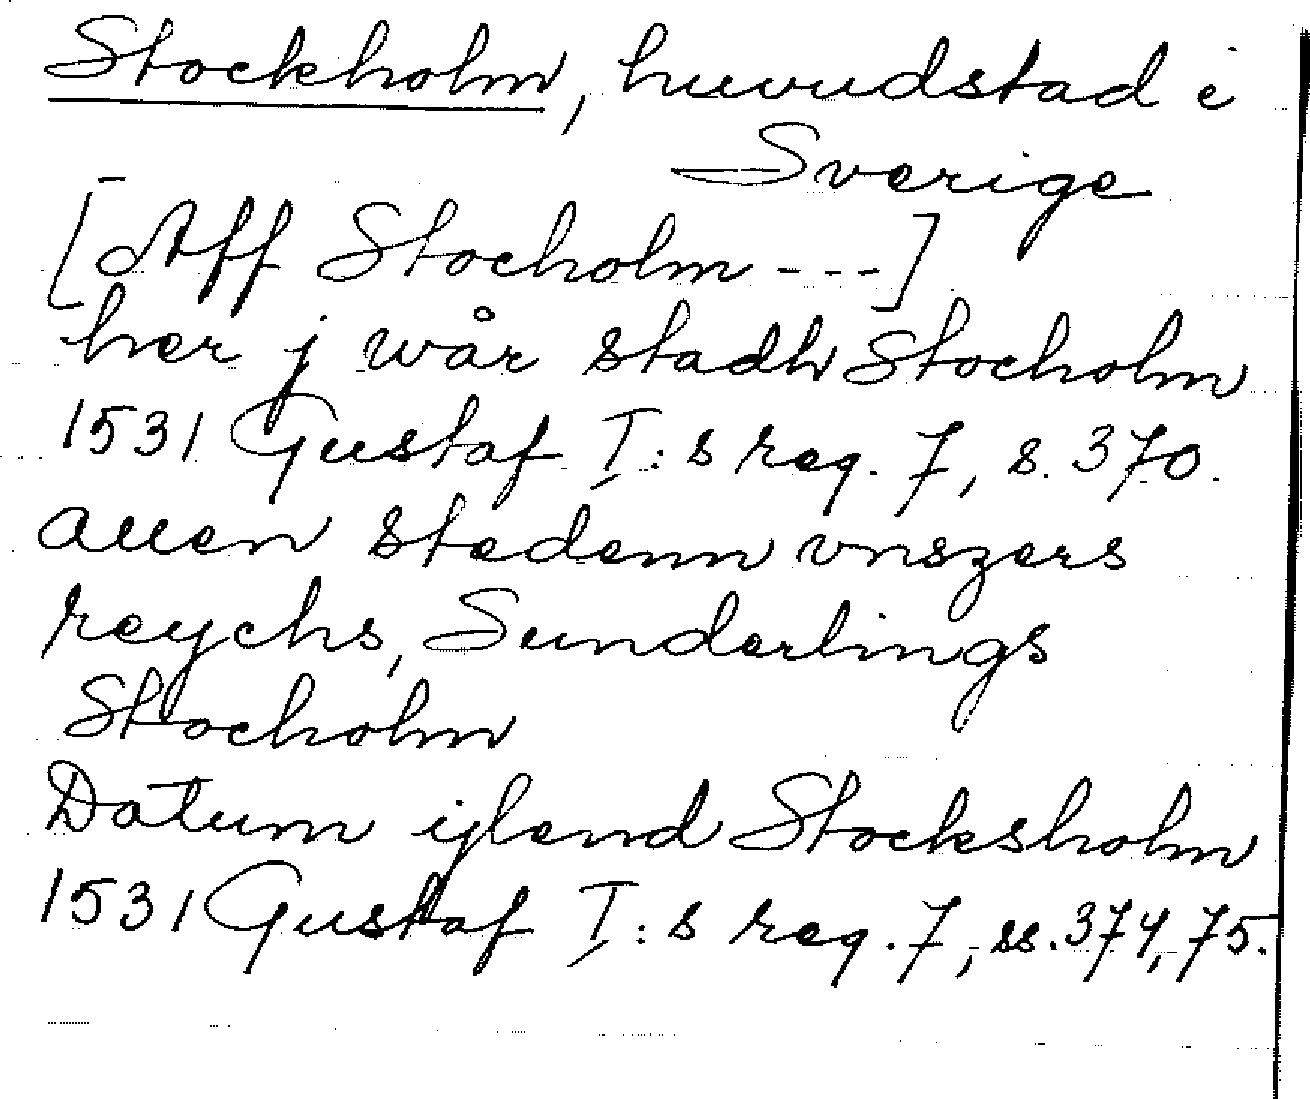 Stockholm, huvudstad i
Sverige
[Aff Stocholm ---]
her j wår stadh Stocholm
1531 Gustaf I:s reg. 7, s. 370.
allen stedenn vnszers
reychs, Sunderlings
Stocholm
Datum ijlend Stocksholm
1531 Gustaf I:s reg. 7, ss. 374, 75.